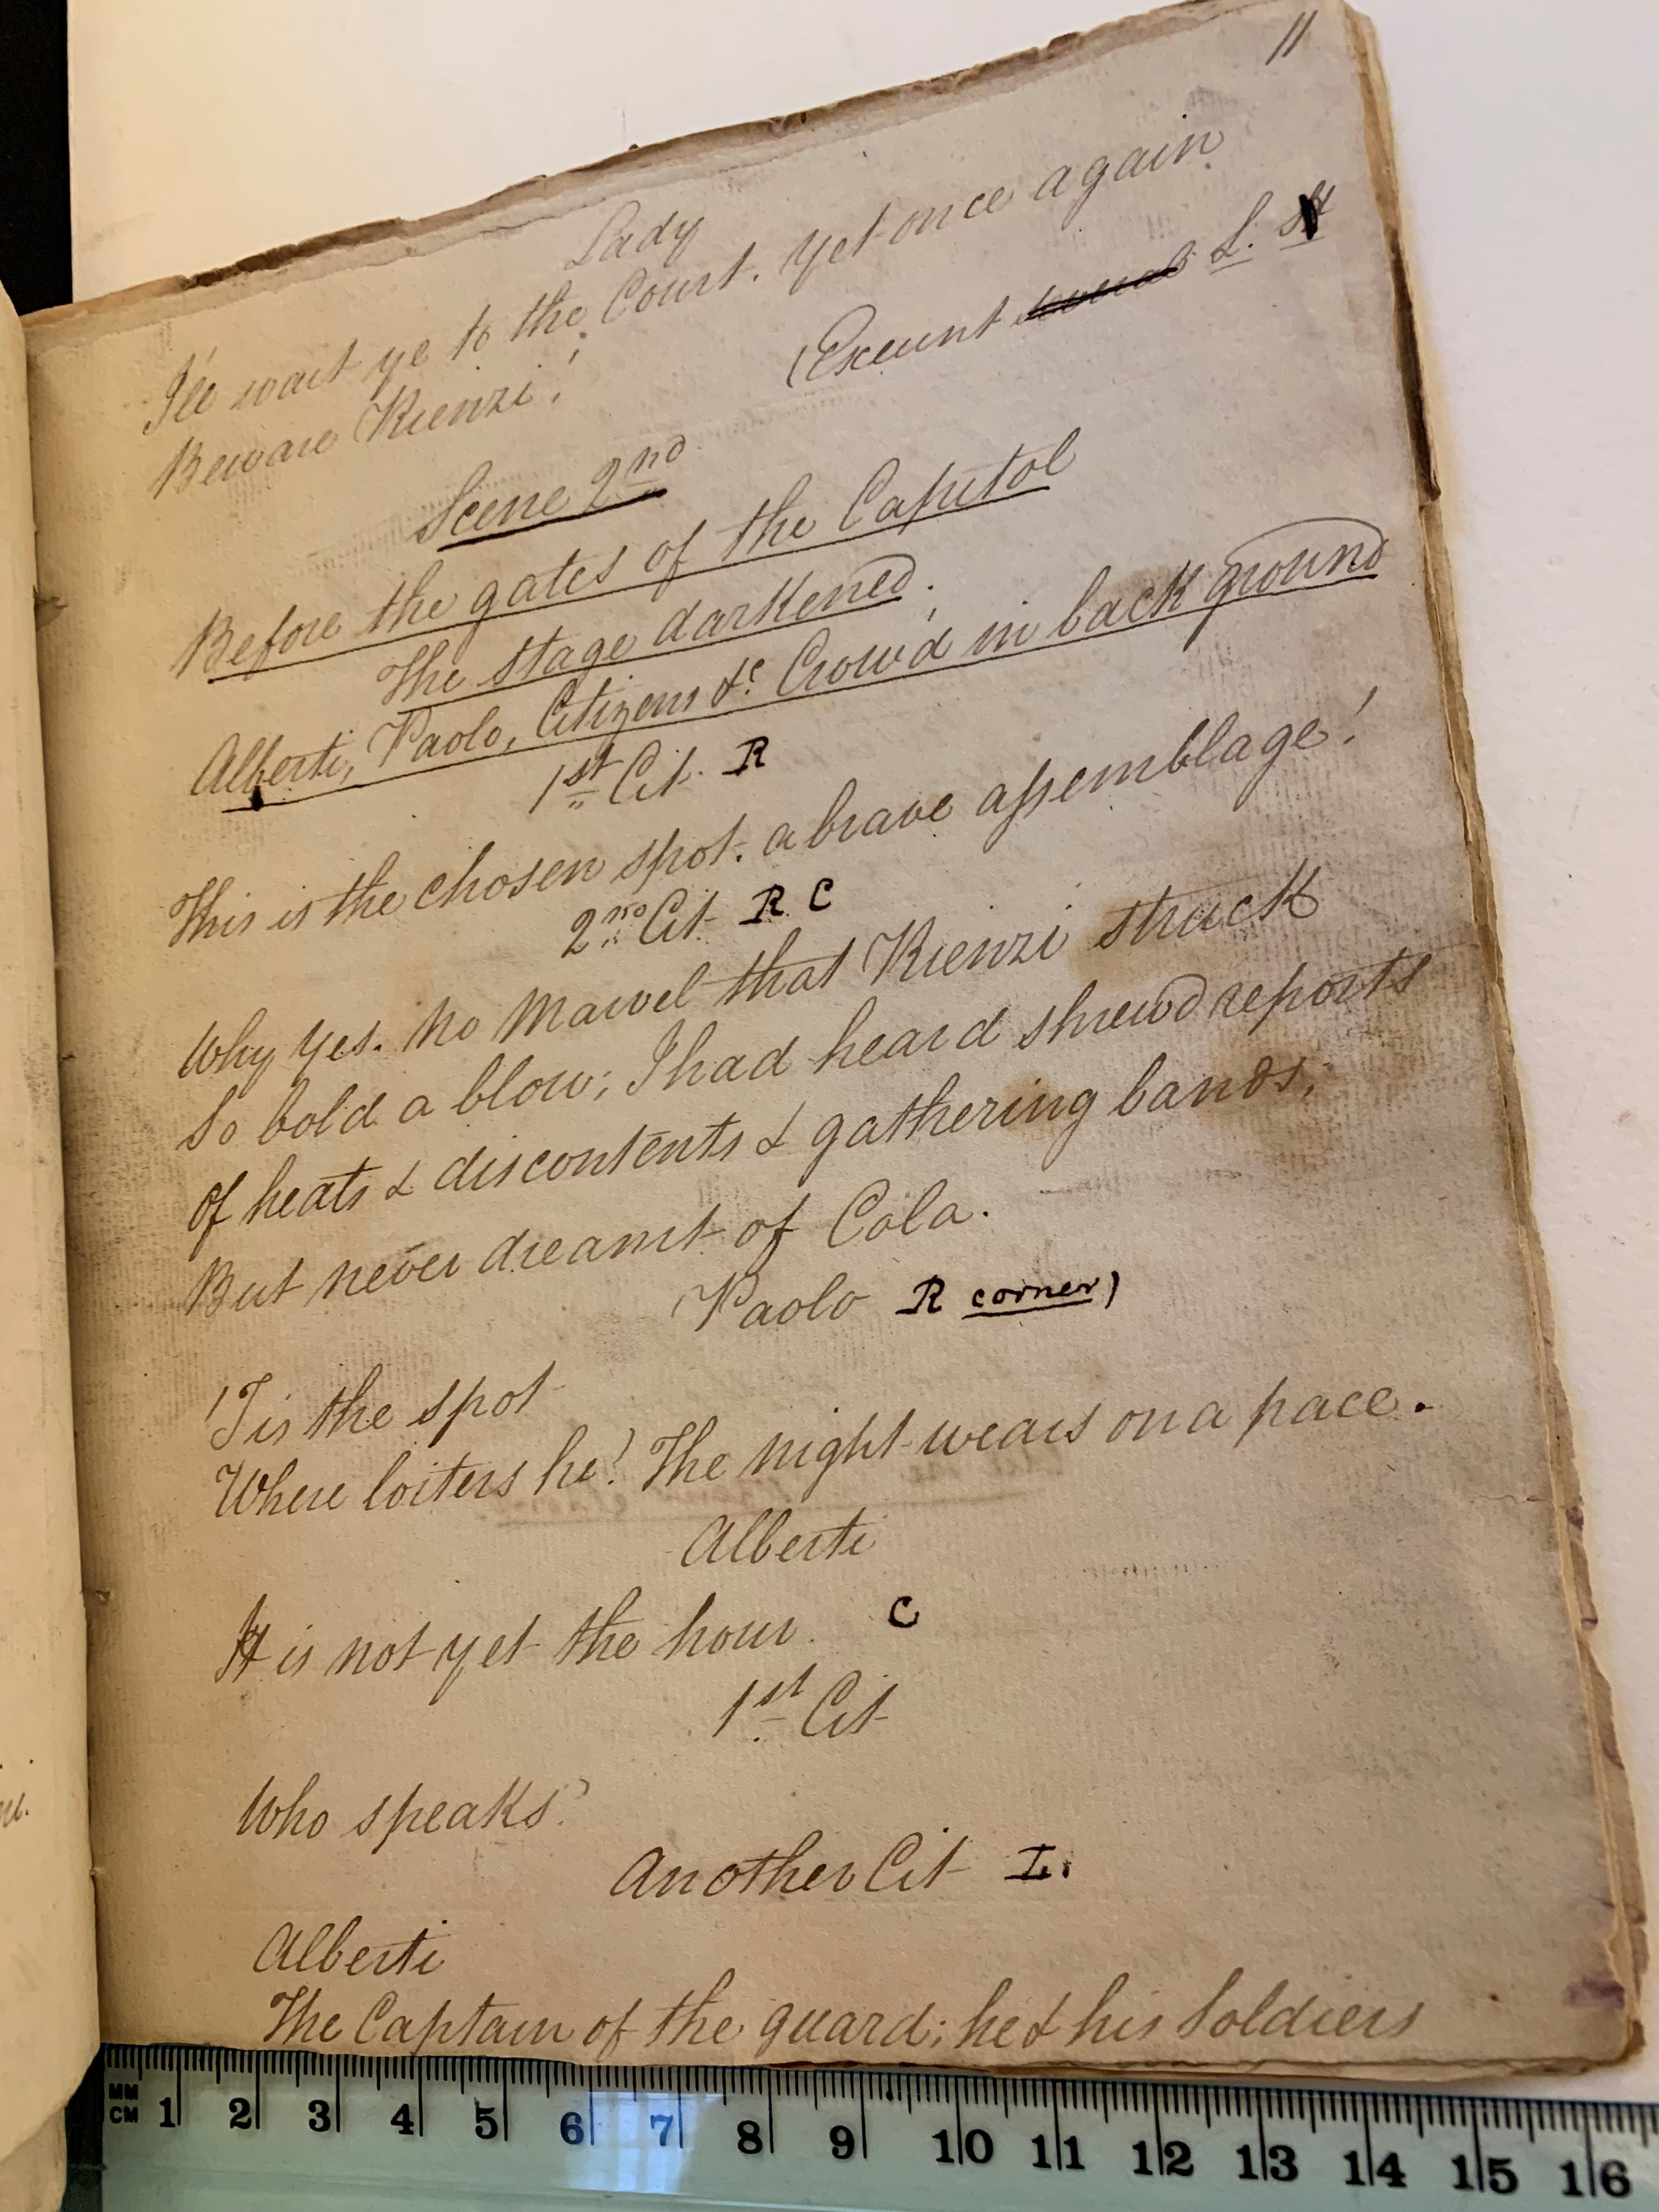 11
Lady
I'le wait ye to the Court. Yet once again
Beware Rienzi!
(Exeunt L.
Scene 2nd
Before the gates of the Capitol
The stage darkened.
Alberti, Paolo, Citizens &c Crowd in back ground
1st Cit. R
This is the chosen spot. a brave assemblage!
2nd Cit R C
Why yes. No Marvel that Rienzi struck
So bold a blow; I had heard shrewd reports
Of heats & discontents & gathering bands;
But never dreamt of Cola.
Paolo R corner)
'Tis the spot
Where loiters he? The night wears on a pace.
Alberti
It is not yet the hour. C
1st Cit
Who speaks?
Another Cit L.
Alberti
The Captain of the guard; he & his Soldiers
MM
CM 1 2 3 4 5 6 7 8 9 10 11 12 13 14 15 16